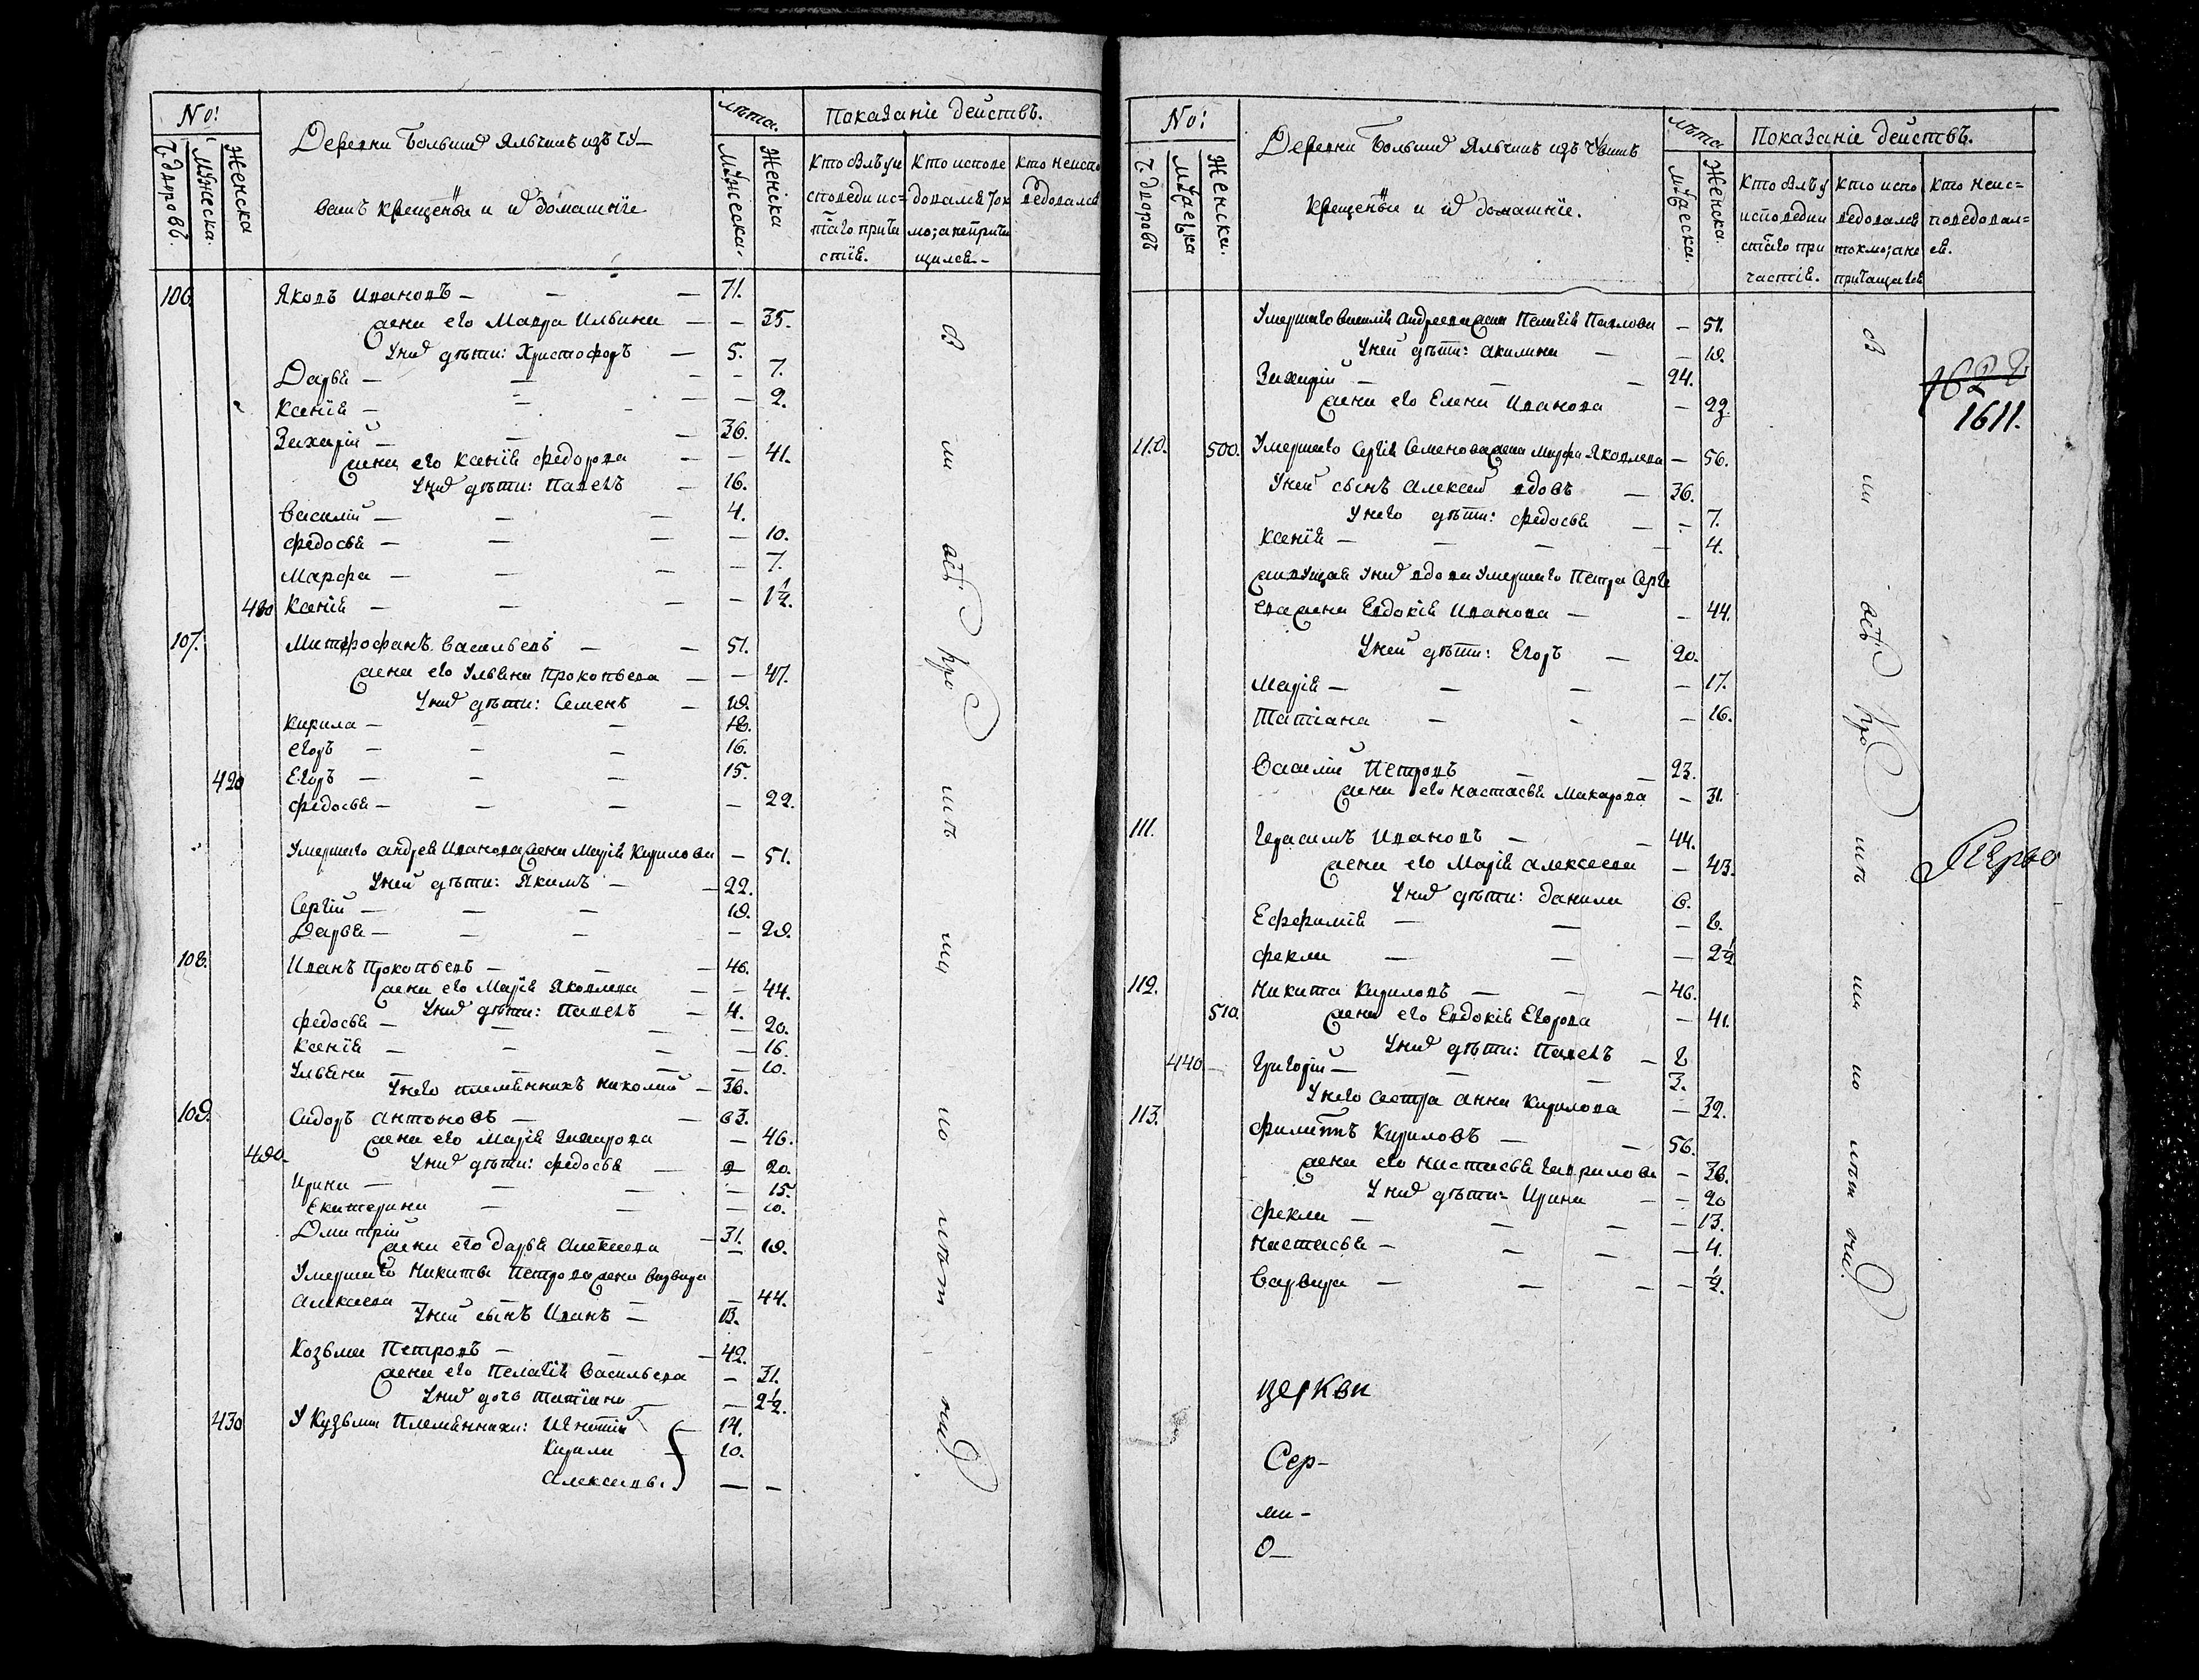 No:
Деревни Большиꙵ Яльчикъ изъ Чу-
вашъ крещеныи и иꙵ домашніе
лѣта.
Показаніе действъ.
ч. дворовъ.
Мужеска.
Женска
Мужеска.
Женска
Кто былъ у и
споведи и с:
таго прича
стія.
Кто испове
довался ток
мо; а не прича
щился.
Кто неиспо
ведовался
106. Яковъ Ивановъ — 71.
жена его Мавра Ильина — 35.
У ниꙵ дѣти: Христофоръ — 5.
Дарья — 7.
Ксенія — 2.
Захарій — 36.
жена его Ксенія Федорова — 41.
У ниꙵ дѣти: Павелъ — 16.
Василій — 4.
Федосья — 10.
Марфа — 7.
480 Ксенія — 1½.
107. Митрофанъ Васильевъ — 51.
жена его Ульяна Прокопьева — 47.
У ниꙵ дѣти: Семенъ — 19.
Кирила — 18.
Егоръ — 16.
420 Егоръ — 15.
Федосья — 22.
Умершаго Андрея Иванова жена Марія Кирилова — 51.
У ней дѣти: Якимъ — 22.
Сергій — 19.
Дарья — 29.
108. Иванъ Прокопьевъ — 46.
жена его Марія Яковлева — 44.
У ниꙵ дѣти: Павелъ — 4.
Федосья — 20.
Ксенія — 16.
Ульяна — 10.
У него племянникъ Николай — 36.
109. Сидоръ Антоновъ — 63.
жена его Марія — 46.
490. У ниꙵ дѣти: Федосья — 20.
Ирина — 15.
Екатерина — 10.
Дмитрій — 31.
жена его Дарья Алексеева — 19.
Умершаго Никиты Петрова жена Варвара
Алексеева — 44.
У ней сынъ Иванъ — 13.
Козьма Петровъ — 42.
жена его Пелагія Васильева — 31.
У ниꙵ дочь Татіана — 2½.
430 У Кузьмы племянники: Игнатій — 14.
Кирила — 10.
Алексеевы. — —
В
ма
лѣт
ни
No:
Деревни Большиꙵ Яльчикъ изъ Чувашъ
крещеныи и иꙵ домашніе.
лѣта
Показаніе действъ.
ч. дворовъ
Мужеска
Женска.
Мужеска.
Женска.
Кто былъ у
исповеди и
с:таго при
частія.
Кто испо
ведовался
токмо; а не
причащался
Кто неис=
поведовал=
ся.
Умершаго Василія Андреева жена Пелагія Павлова — 51.
У ней дѣти: Акилина — 19.
Захарій — 24.
жена его Елена Иванова — 23.
1611.
110. 500. Умершаго Сергія Семенова жена Марфа Яковлева — 56.
У ней сынъ Алексей вдовъ — 36.
У него дѣти: Федосья — 7.
Ксенія — 4.
живущая у ниꙵ вдова умершаго Петра Серге
ева жена Евдокія Иванова — 44.
У ней дѣти: Егоръ — 20.
Марія — 17.
Татіана — 16.
Василій Петровъ — 23.
жена его Настасья Макарова — 31.
111. Герасимъ Ивановъ — 44.
жена его Марія Алексеева — 43.
У ниꙵ дѣти: Данила 6.
Перво
Ефимія — 8.
Фекла — 2½
112. Никита Кириловъ — 46.
510. жена его Евдокія Егорова — 41.
У ниꙵ дѣти: Павелъ — 8
440 Григорій — 3.
У него сестра Анна Кирилова — 32.
113. Филиппъ Кириловъ — 56.
жена его Настасья Гаврилова — 36.
У ниꙵ дѣти: Ирина — 20
Фекла — 13.
Настасья — 4.
Варвара — ½.
церкви
Сер-
ми-
О-